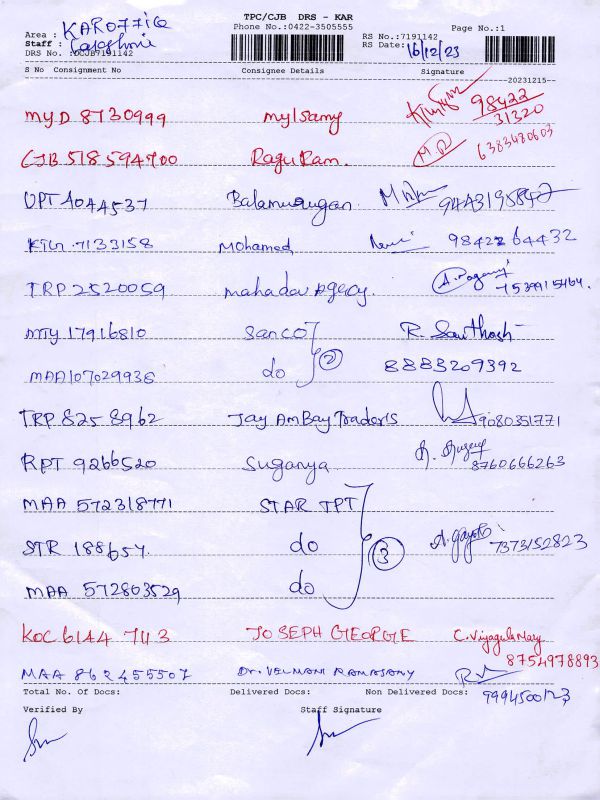 TPC/CJB DRS - KAR
Phone No.:0422-3505555
Page No.:1
Area : KAROTTIG
Staff : Rajeshmi
DRS No. :OCJB7191142
RS No.:7191142
RS Date: 16/12/23
S No Consignment No Consignee Details Signature
20231215--
MYD 8730999 mylsamy 98422 31320
CJB 518594700 Raguram. M.R 6383480603
UPT 4044537 Balamurugan
KTG 7133158 Mohamed 98422 64432
TRP 2520059 mahadav Agecy.
MTY 17916810 Sanco R. Santhosh
MAA107029936 do (2) 8883209392
TRP 8258962 Jay AmBay Traders 9080351771
RPT 9266520 Suganya 8760666263
MAA 572318771 STAR TPT
STR 188657. do (3) 7373152823
MAA 572803529 do
KOC 6144 7113 JOSEPH GEORGE C. Vijagula Mary 8754978893
MAA 862455507 Dr. VELMANI RAMASAMY
Total No. Of Docs: Delivered Docs: Non Delivered Docs:
Verified By Staff Signature